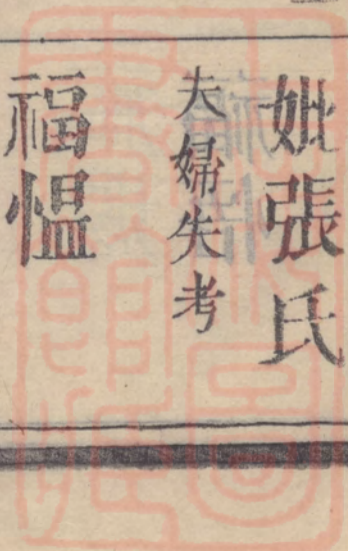 妣張氏
夫婦失考
福愠